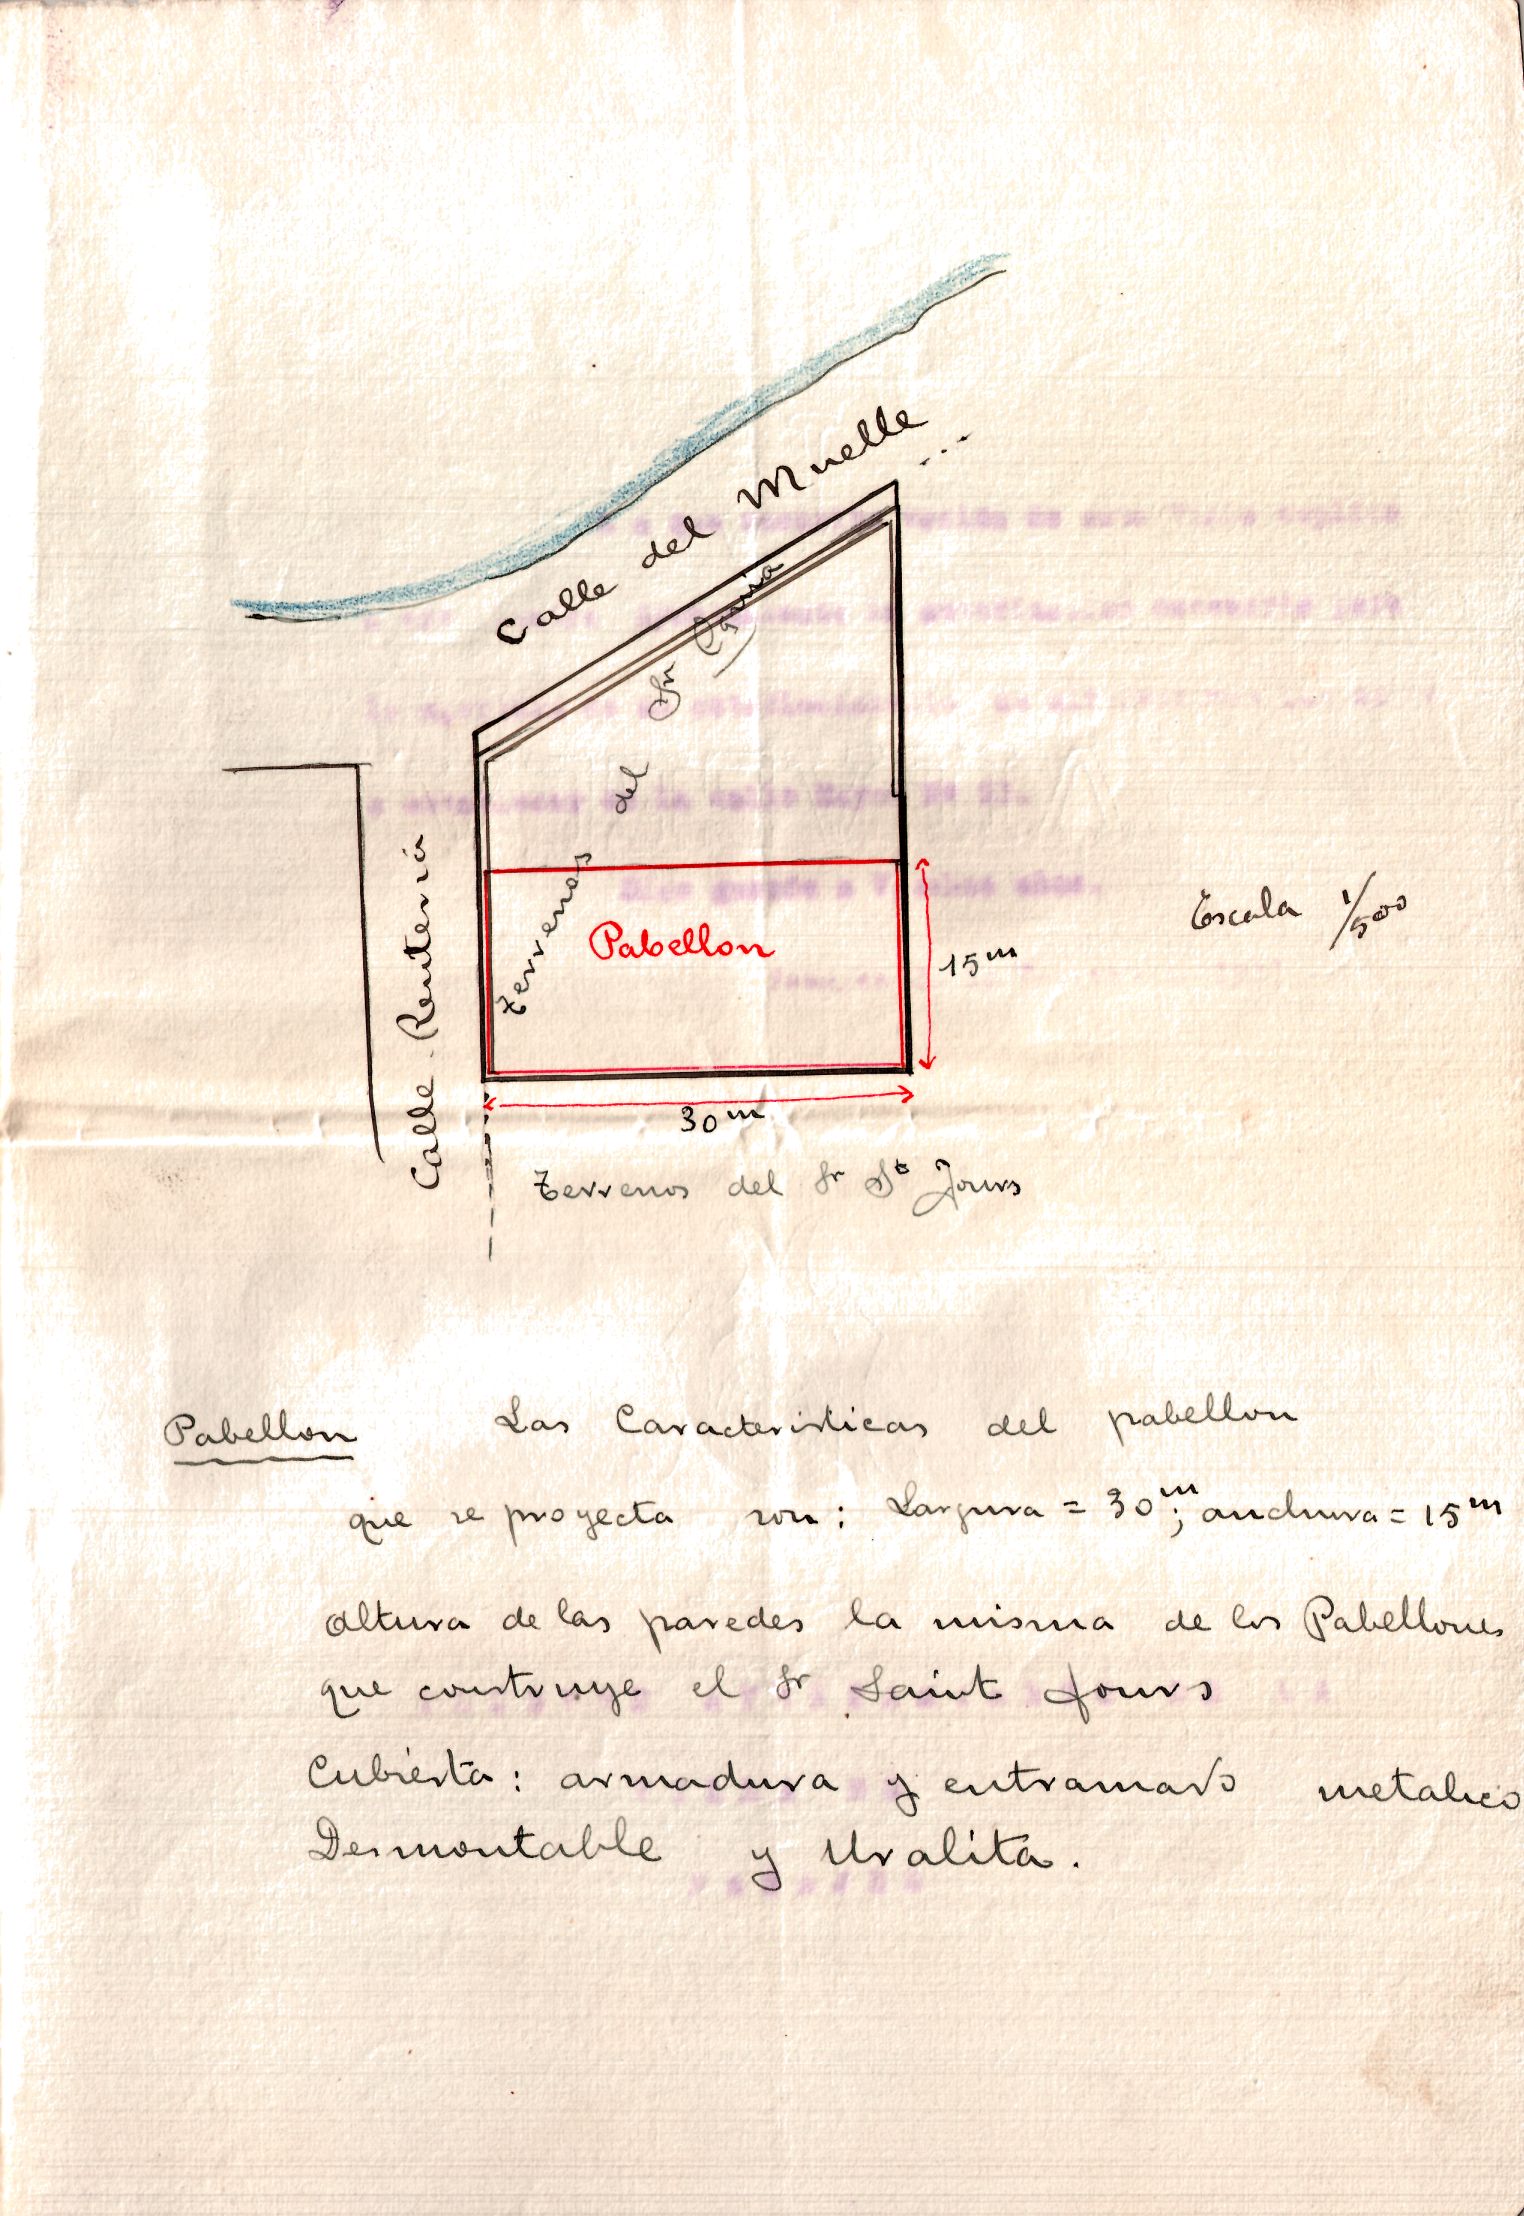 Calle del Muelle ...
Terrenos del Sr
Pabellon
Calle Rentería
15m
Escala 1/500
30m
Terrenos del Sr St Jours
Pabellon Las Caracteristicas del pabellon
que se proyecta son: Largura = 30m; anchura = 15m
altura de las paredes la misma de los Pabellones
que construye el Sr Saint Jours
Cubierta: armadura y entramado metalico
Desmontable y Uralita.